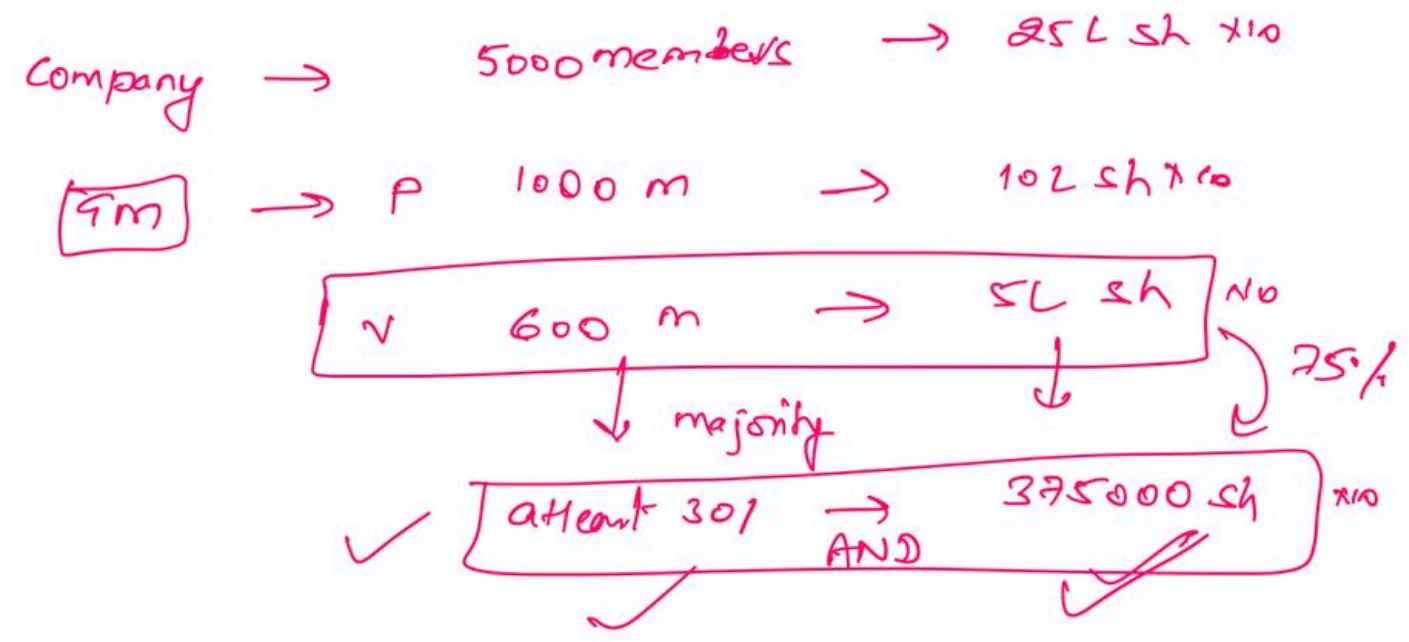 Company → 5000 members → 25L sh x10
GM → P 1000 m → 10L sh x10
V 600 m → 5L sh x10
75%
majority
atleast 301 → 375000 sh x10
AND